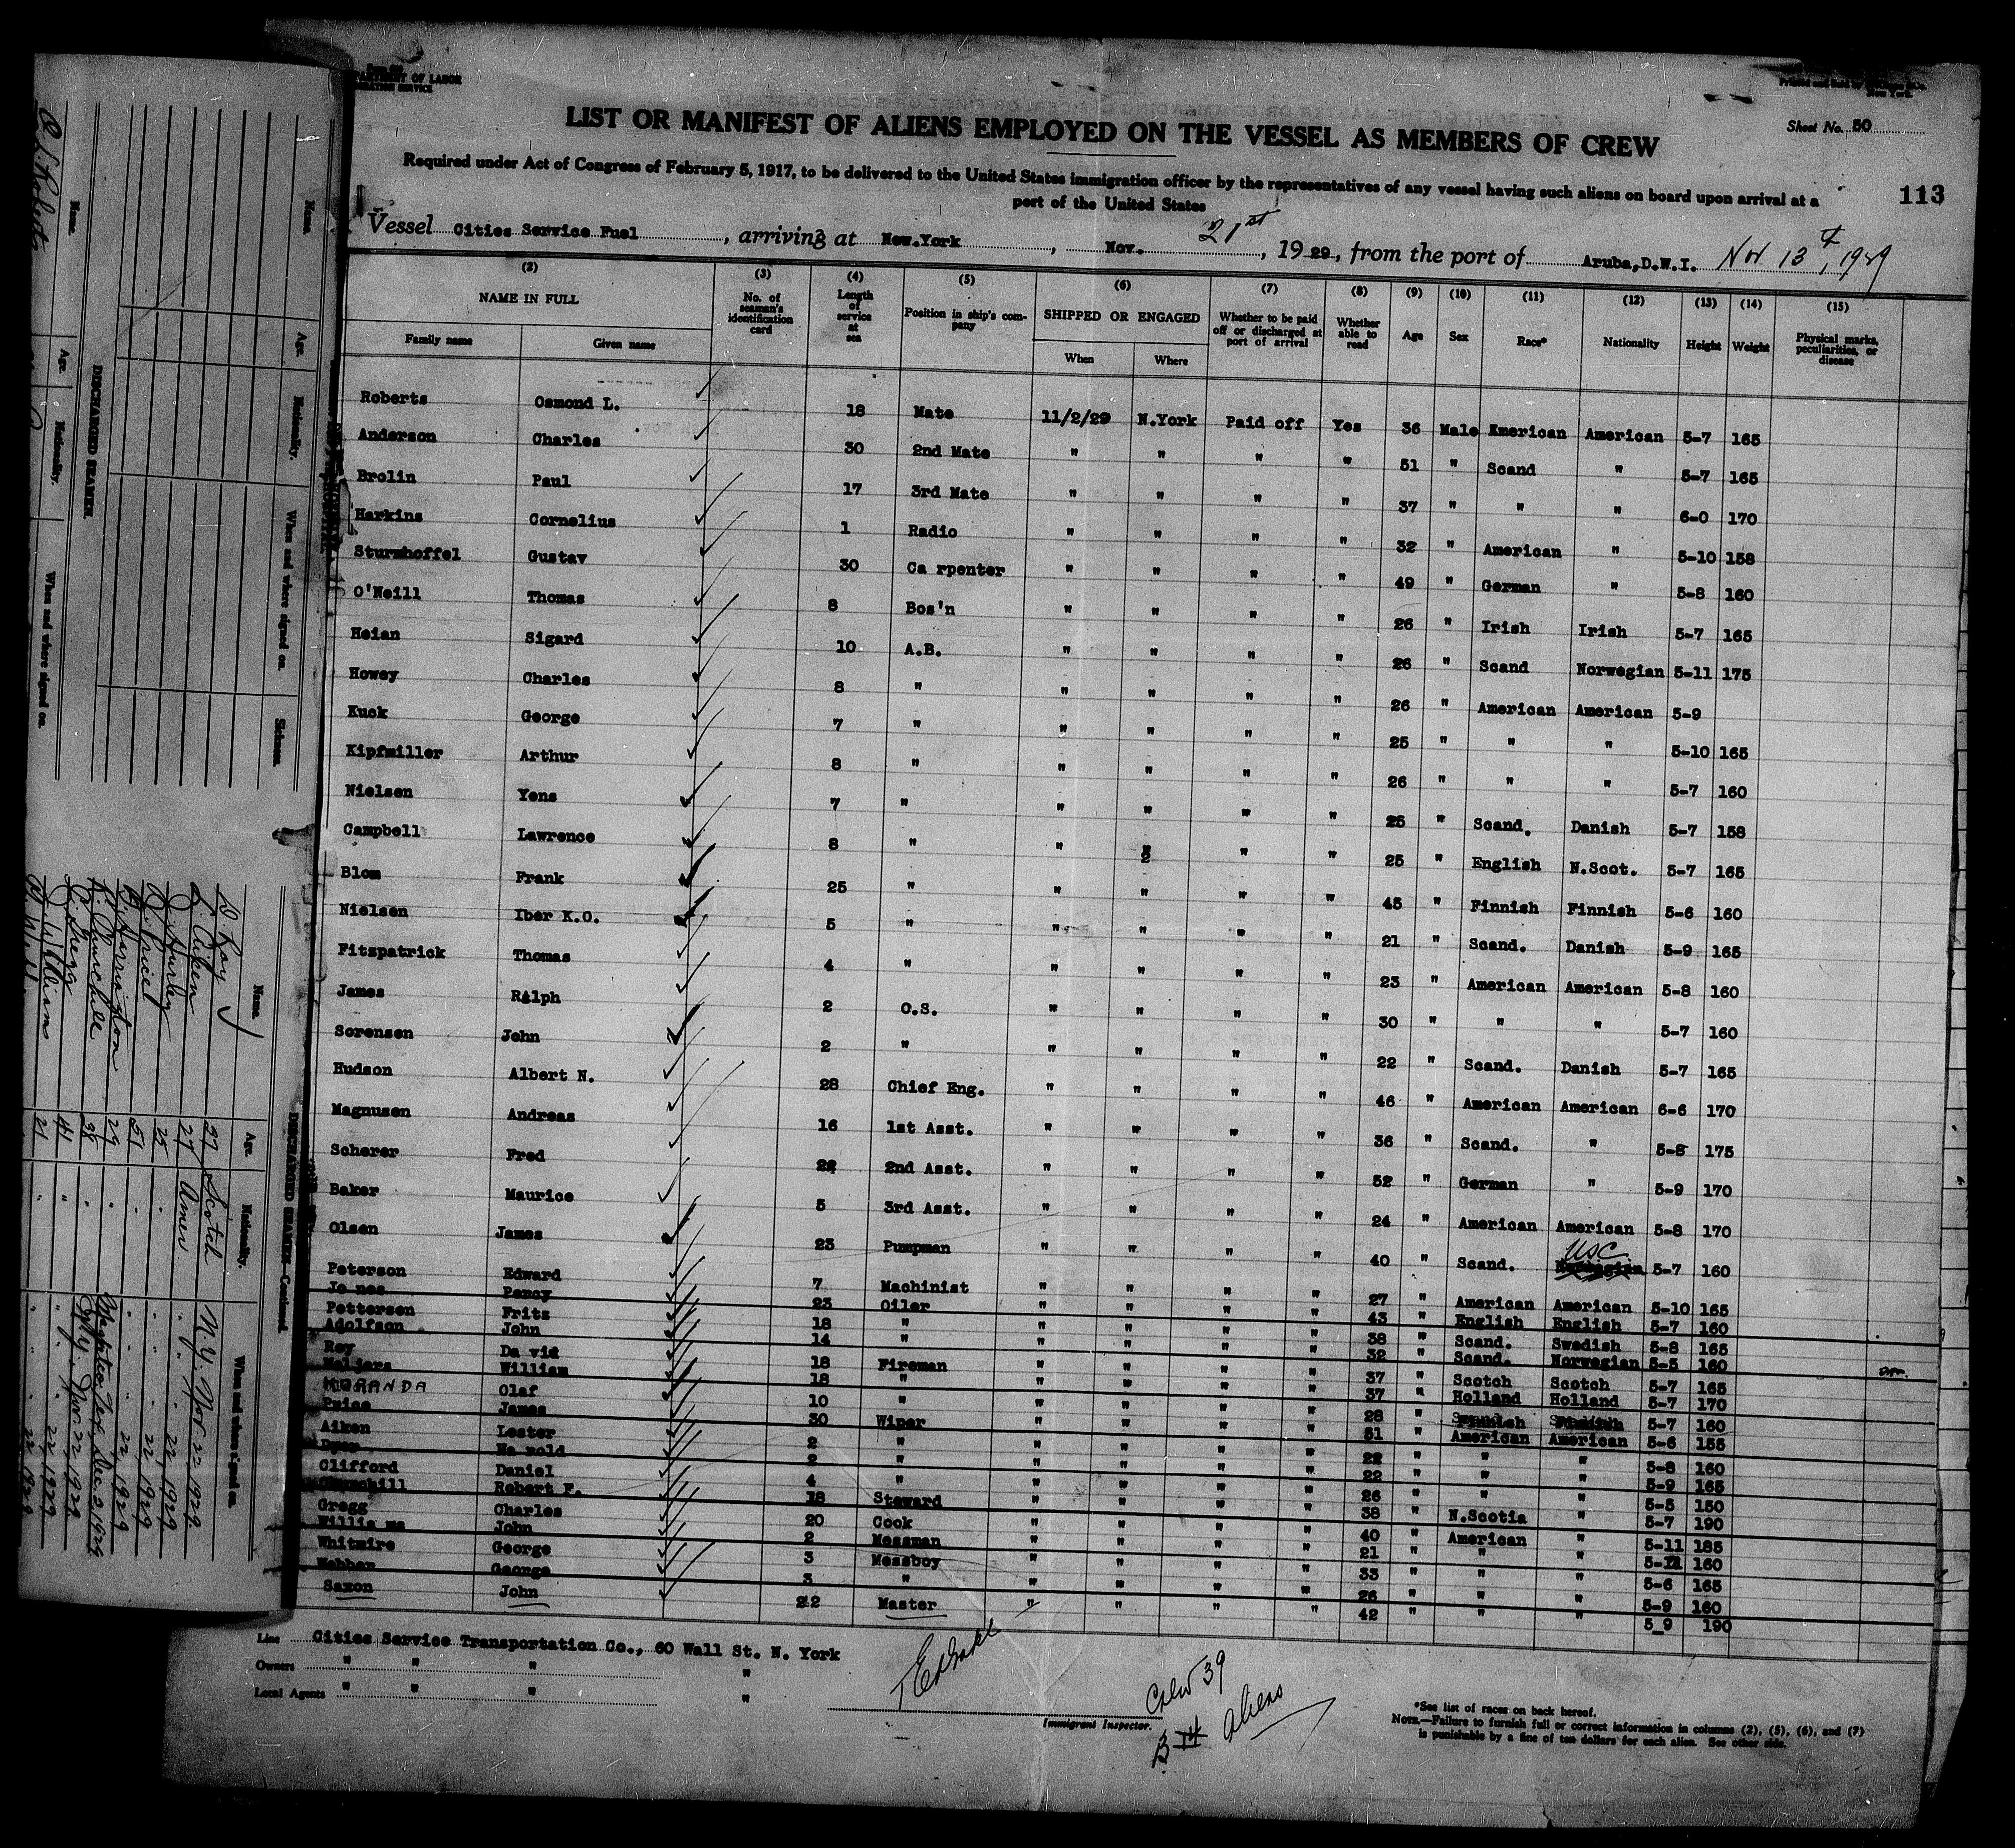 DEPARTMENT OF LABOR
IMMIGRATION SERVICE
Printed and Sold by
New York.
LIST OR MANIFEST OF ALIENS EMPLOYED ON THE VESSEL AS MEMBERS OF CREW
Sheet No. 50
Required under Act of Congress of February 5, 1917, to be delivered to the United States immigration officer by the representatives of any vessel having such aliens on board upon arrival at a
port of the United States
113
Vessel Cities Service Fuel, arriving at New.York, Nov. 21st, 1929, from the port of Aruba,D.W.I. Nov 13th, 1929
(2) (3) (4) (5) (6) (7) (8) (9) (10) (11) (12) (13) (14) (15)
NAME IN FULL No. of seaman's identification card Length of service at sea Position in ship's company SHIPPED OR ENGAGED Whether to be paid off or discharged at port of arrival Whether able to read Age Sex Race* Nationality Height Weight Physical marks, peculiarities, or disease
Family name Given name When Where
Roberts Osmond L. 18 Mate 11/2/29 N.York Paid off Yes 36 Male Emerican American 5-7 165
Anderson Charles 30 2nd Mate " " " " 51 " Scand " 5-7 165
Brolin Paul 17 3rd Mate " " " " 37 " " " 6-0 170
Harkins Cornelius 1 Radio " " " " 32 " American " 5-10 158
Sturmhoffel Gustav 30 Ca rpenter " " " " 49 " German " 5-8 160
O'Neill Thomas 8 Bos'n " " " " 26 " Irish Irish 5-7 165
Heian Sigard 10 A.B. " " " " 26 " Scand Norwegian 5-11 175
Howey Charles 8 " " " " " 26 " American American 5-9
Kuck George 7 " " " " " 25 " " " 5-10 165
Kipfmiller Arthur 8 " " " " " 26 " " " 5-7 160
Nielsen Yens 7 " " " " " 25 " Scand. Danish 5-7 158
Campbell Lawrence 8 " " " " " 25 " English N.Scot. 5-7 165
Blom Frank 25 " " " " " 45 " Finnish Finnish 5-6 160
Nielsen Iber K.O. 5 " " " " " 21 " Scand. Danish 5-9 165
Fitzpatrick Thomas 4 " " " " " 23 " American American 5-8 160
James Ralph 2 O.S. " " " " 30 " " " 5-7 160
Sorensen John 2 " " " " " 22 " Scand. Danish 5-7 165
Hudson Albert N. 28 Chief Eng. " " " " 46 " American American 6-6 170
Magnusen Andreas 16 1st Asst. " " " " 36 " Scand. " 5-8 175
Scherer Fred 22 2nd Asst. " " " " 52 " German " 5-9 170
Baker Maurice 5 3rd Asst. " " " " 24 " American American 5-8 170
Olsen James 23 Pumpman " " " " 40 " Scand. Norwegian USC 5-7 160
Peterson Edward 7 Machinist " " " " 27 " American American 5-10 165
Jo nes Percy 23 Oiler " " " " 43 " English English 5-7 160
Pettersen Fritz 18 " " " " " 38 " Scand. Swedish 5-8 165
Adolfson John 14 " " " " " 32 " Scand. Norwegian 5-5 160
Roy Da vid 18 Fireman " " " " 37 " Scotch Scotch 5-7 165
William 18 " " " " " 37 " Holland Holland 5-7 170
MORANDA Olaf 10 " " " " " 28 " 5-7 160
Price James 30 Wiper " " " " 51 " American American 5-6 155
Aiken Lester 2 " " " " " 22 " " " 5-8 160
Dyer Ha rold 2 " " " " " 22 " " " 5-9 165
Clifford Daniel 4 " " " " " 26 " " " 5-5 150
Churchill Robert F. 18 Steward " " " " 38 " N.Scotia " 5-7 190
Gregg Charles 20 Cook " " " " 40 " American " 5-11 185
Willia ms John 2 Messman " " " " 21 " " " 160
Whitmire George 3 Messboy " " " " 33 " " " 5-6 165
George 3 " " " " " 26 " " " 5-9 160
Saxon John 22 Master " " " " 42 " " " 5_9 190
Line Cities Service Transportation Co., 60 Wall St. N. York
Owners " " " "
Local Agents " " " "
Immigrant Inspector.
Crew 39
13 aliens
*See list of races on back hereof.
NOTE.—Failure to furnish full or correct information in columns (2), (5), (6), and (7)
is punishable by a fine of ten dollars for each alien. See other side.
DISCHARGED SEAMEN
Name. Age. Nationality. When and where signed on.
Name. Age. Nationality. When and where signed on. Sickness.
O. L. Roberts
DISCHARGED SEAMEN—Continued
Name. Age. Nationality. When and where signed on.
D. Roy 37 Scotch N.Y. Nov. 22 1929
L. Aiken 27 Amer. " " 22, 1929
J. Hurley 25 " " 22, 1929
J. Price 51 " " 22, 1929
29 " " 22, 1929
Churchill 38 "
C. Gregg 41 " N.Y. Nov. 22 1929
J. Williams 21 " " 22 1929